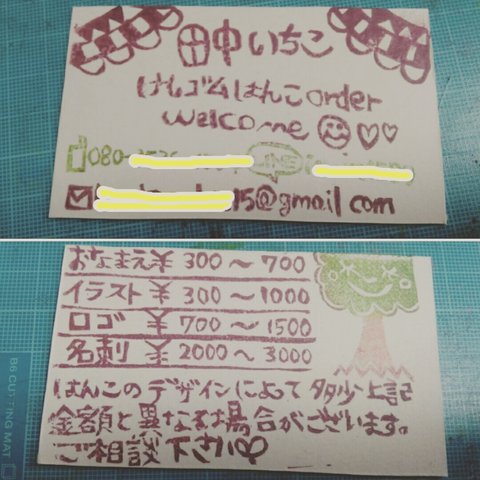 田中いちこ
けしゴムはんこorder
welcome
080-
LINE
15@gmail com
おなまえ¥ 300〜700
イラスト ¥ 300〜1000
ロゴ ¥ 700〜1500
名刺 ¥ 2000〜3000
はんこのデザインによって多少上記
金額と異なる場合がございます。
ご相談下さい
B6 CUTTING MAT